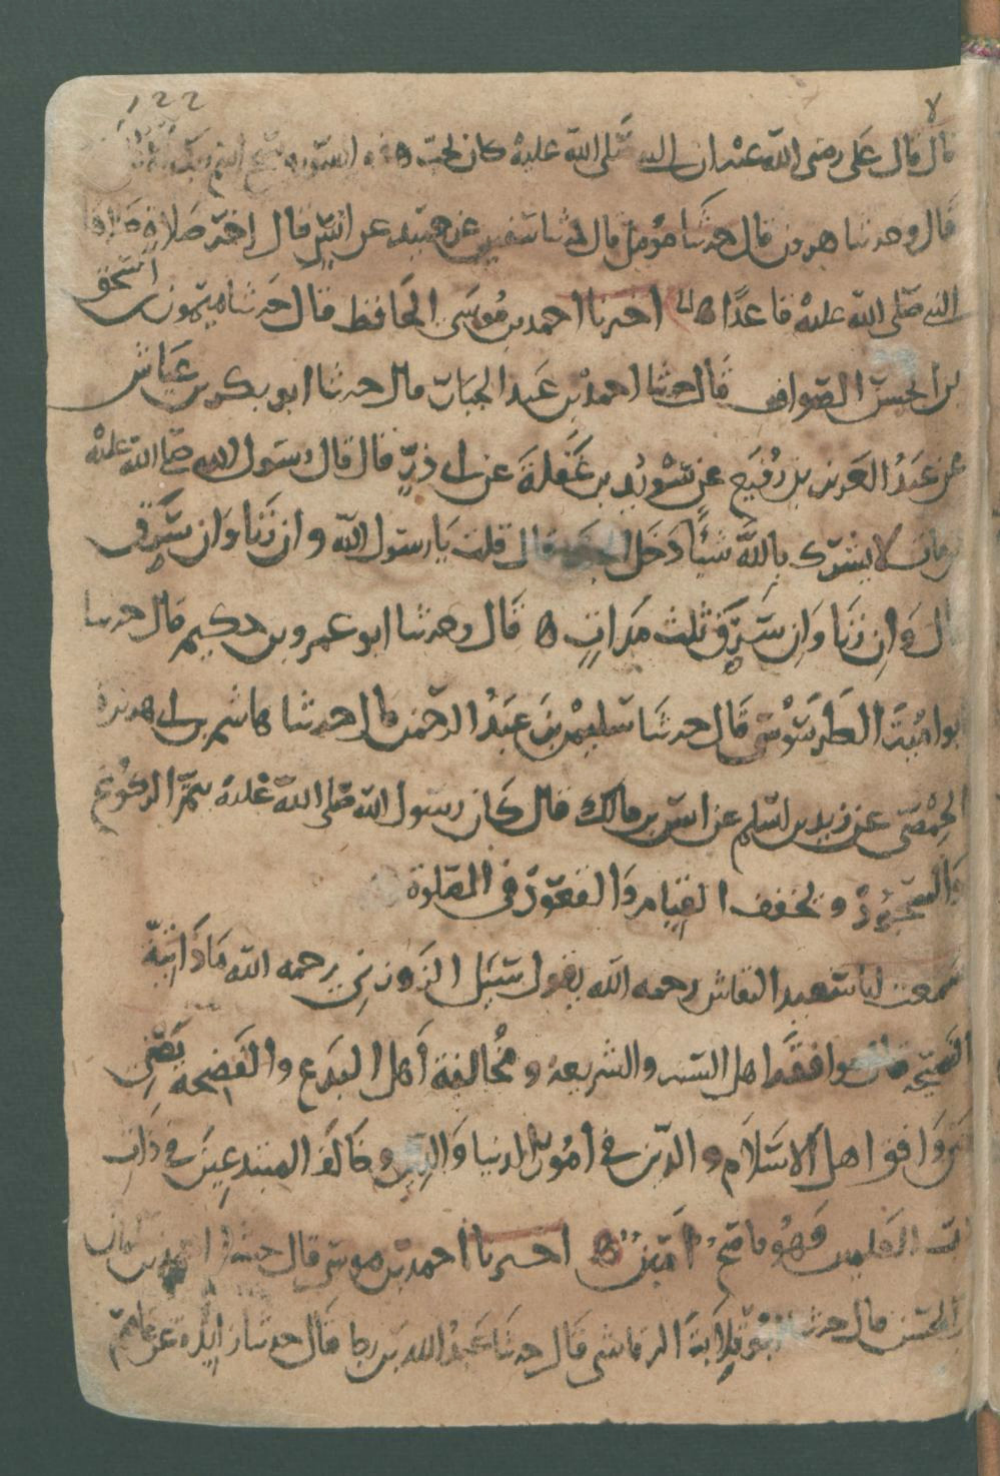 ١٢٢
قال قال على رضى الله عنه ان النبى صلى الله عليه كان يحب هذه السورة سبح اسم ربك
قال وحدثنا هرون قال حدثنا مؤمل قال حدثنا سفين عن حميد عن انس قال اخر صلاة صلاها
النبى صلى الله عليه قاعدا ه اخبرنا احمد بن موسى الحافظ قال حدثنا ميمون بن اسحق
بن الحسن الصواف قال حدثنا احمد بن عبد الجبار قال حدثنا ابو بكر بن عياش
عن عبد العزيز بن رفيع عن سويد بن غفلة عن ابى ذر قال قال رسول الله صلى الله عليه
من مات لا يشرك بالله شيئا دخل الجنة قال قلت يا رسول الله وان زنا وان سرق
قال وان زنا وان سرق ثلث مرات ه قال وحدثنا ابو عمرو بن حكيم قال حدثنا
ابو امية الطرسوسى قال حدثنا سليم بن عبد الرحمن قال حدثنا هاشم بن ابى هريرة
الحمصى عن زيد بن اسلم عن انس بن مالك قال كان رسول الله صلى الله عليه يتم الركوع
والسجود ويخفف القيام والقعود فى الصلوة
سمعت ابا سعيد النقاش رحمه الله يقول سئل الزوزنى رحمه الله ماذا
النصيحة قال موافقة اهل السنة والشريعة ومخالفة اهل البدع والفضيحة
من وافق اهل الاسلام والدين فى امور الدنيا والدين وخالف المبتدعين فى ذات
رب العلمين فهو ناصح امين ه اخبرنا احمد بن موسى قال حدثنا احمد بن
بن الحسن قال حدثنا ابو قلابة الرقاشى قال حدثنا عبد الله بن رجا قال حدثنا زايدة عن عاصم